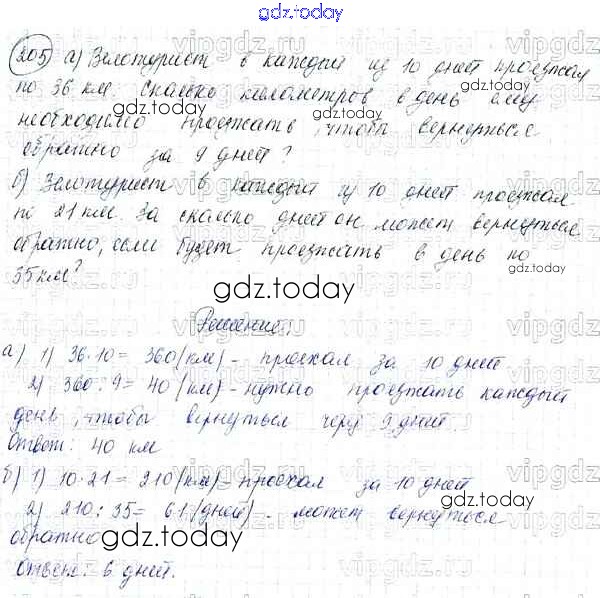 gdz.today
205 а) Велотурист в каждый из 10 дней проезжал
по 36 км. Сколько километров в день ему
gdz.today
необходимо проезжать, чтобы вернуться
обратно за 9 дней?
gdz.today
б) Велотурист в каждый из 10 дней проезжал
по 21 км. За сколько дней он может вернуться
обратно, если будет проезжать в день по
35 км?
gdz.today
gdz.today
Решение:
а) 1) 36·10 = 360 (км) - проехал за 10 дней
2) 360:9 = 40 (км) - нужно проезжать каждый
день, чтобы вернуться через 9 дней.
gdz.today
Ответ: 40 км
б) 1) 10·21 = 210 (км) - проехал за 10 дней
gdz.today
2) 210:35 = 6 (дней) - может вернуться
обратно
gdz.today
Ответ: 6 дней.